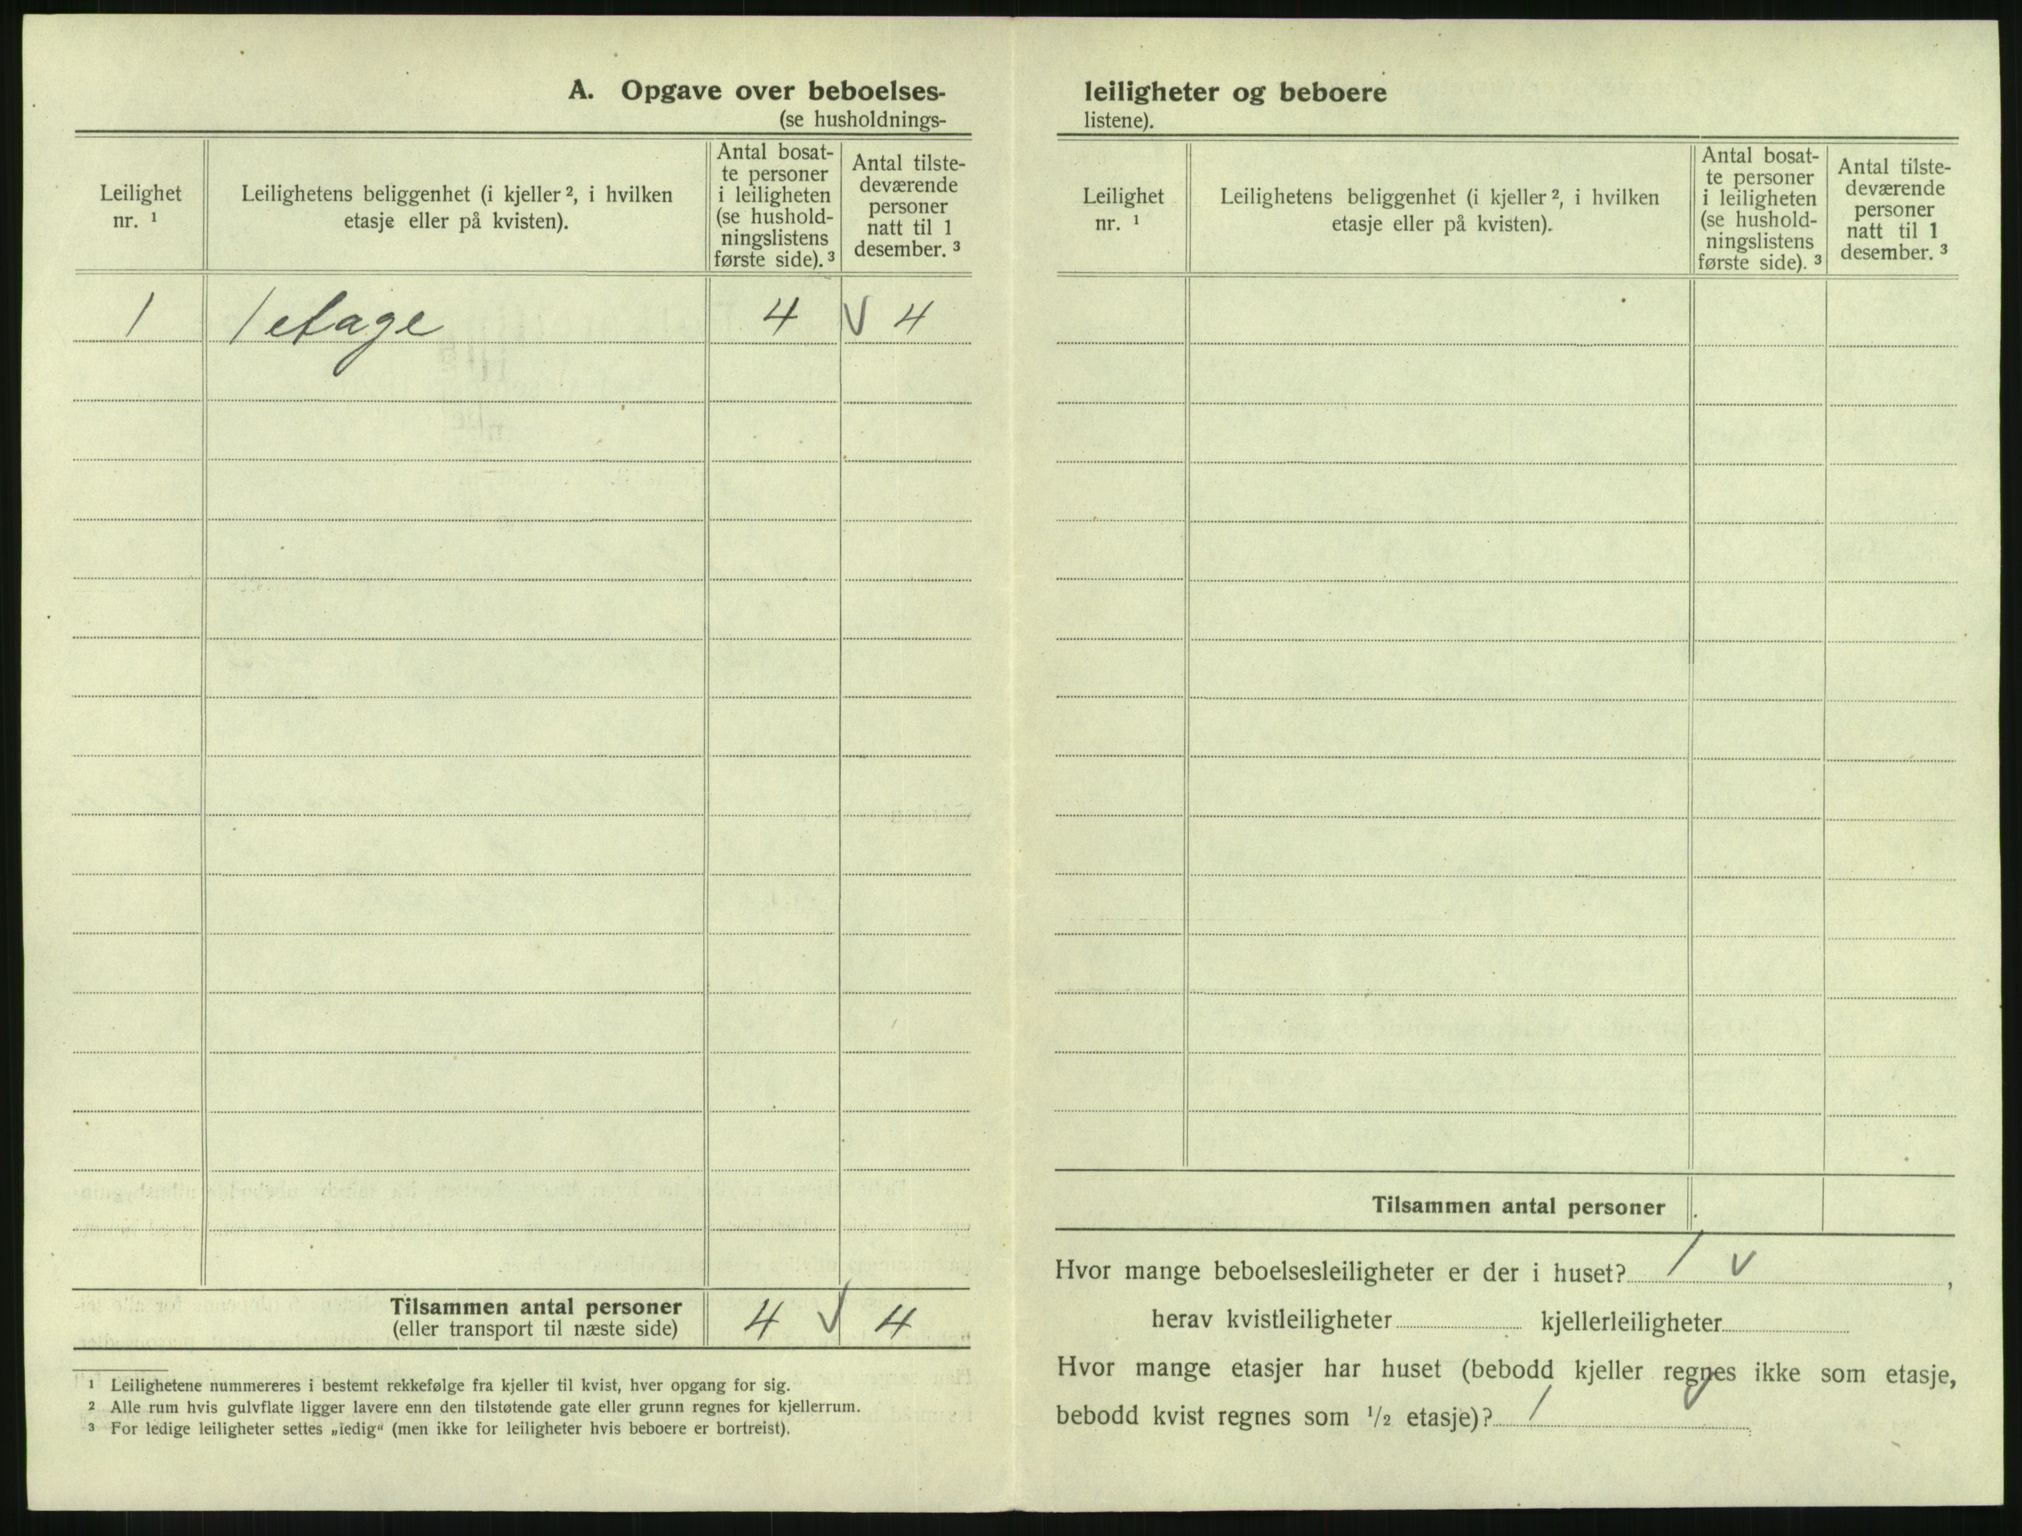 A. Opgave over beboelses-
(se husholdnings-
Leilighet
nr. ¹
Leilighetens beliggenhet (i kjeller ², i hvilken
etasje eller på kvisten).
Antal bosat-
te personer
i leiligheten
(se hushold-
ningslistens
første side). ³
Antal tilste-
deværende
personer
natt til 1
desember. ³
1 1 etage 4 V 4
Tilsammen antal personer
(eller transport til næste side)
4 V 4
¹ Leilighetene nummereres i bestemt rekkefølge fra kjeller til kvist, hver opgang for sig.
² Alle rum hvis gulvflate ligger lavere enn den tilstøtende gate eller grunn regnes for kjellerrum.
³ For ledige leiligheter settes „iedig“ (men ikke for leiligheter hvis beboere er bortreist).
leiligheter og beboere
listene).
Leilighet
nr. ¹
Leilighetens beliggenhet (i kjeller ², i hvilken
etasje eller på kvisten).
Antal bosat-
te personer
i leiligheten
(se hushold-
ningslistens
første side). ³
Antal tilste-
deværende
personer
natt til 1
desember. ³
Tilsammen antal personer
Hvor mange beboelsesleiligheter er der i huset? 1 V ,
herav kvistleiligheter kjellerleiligheter
Hvor mange etasjer har huset (bebodd kjeller regnes ikke som etasje,
bebodd kvist regnes som ½ etasje)? 1 V